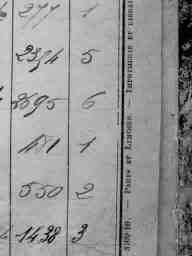 277 1
2394 5
3695 6
181 1
550 2
1438 3
IMPRIMERIE ET LIBRAI
PARIS ET LIMOGES. —